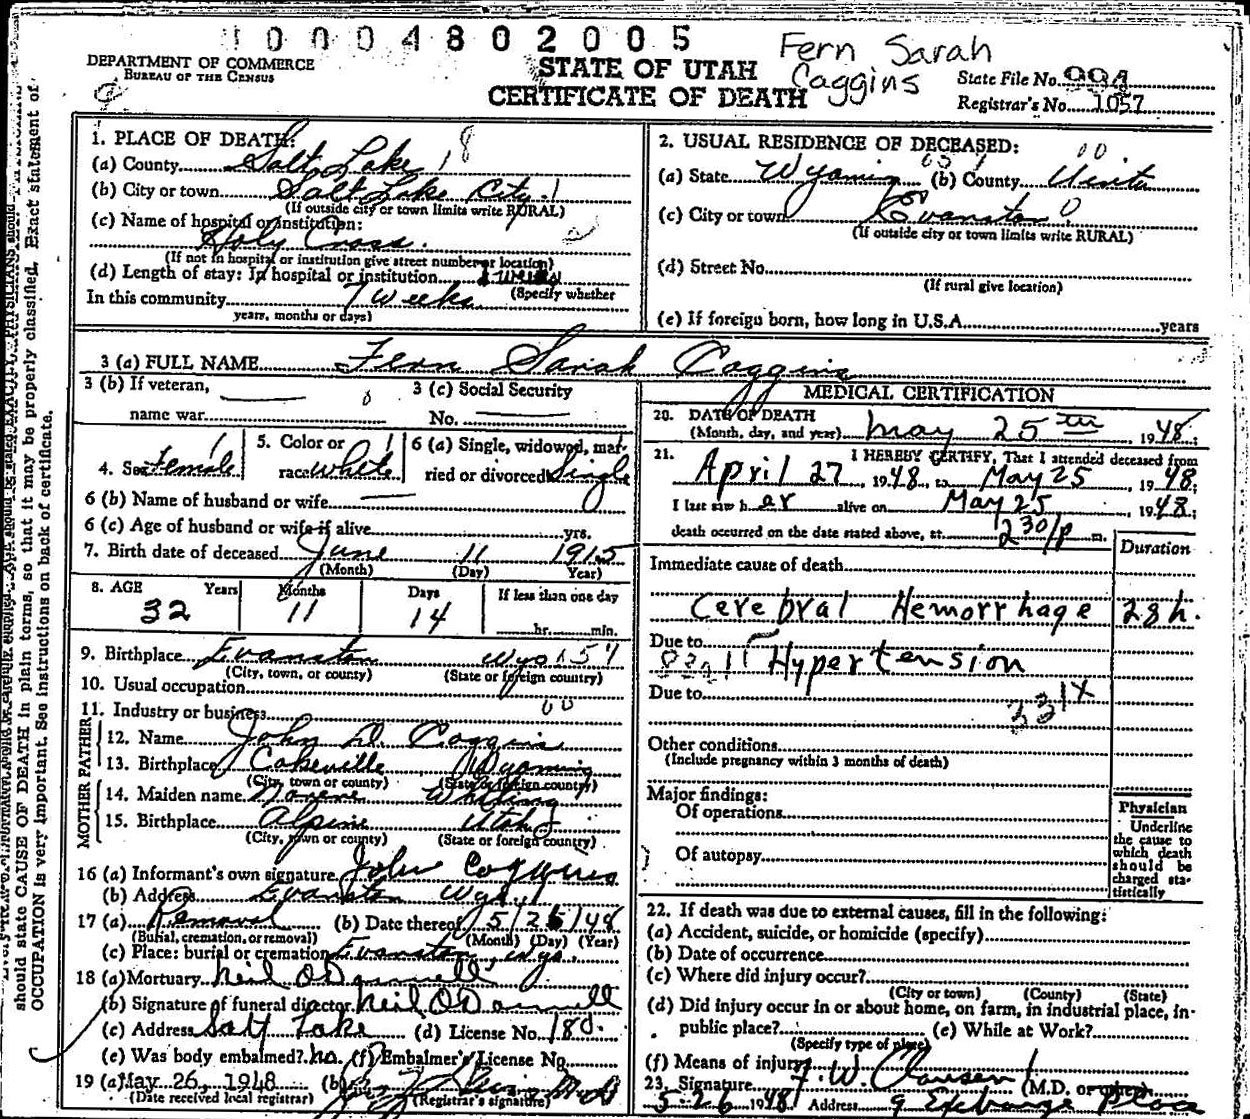 1 0 0 0 4 8 0 2 0 0 5
Fern Sarah
Coggins
DEPARTMENT OF COMMERCE
BUREAU OF THE CENSUS
STATE OF UTAH
CERTIFICATE OF DEATH
State File No.
Registrar's No. 1057
1. PLACE OF DEATH:
(a) County Salt Lake
(b) City or town Salt Lake City
(If outside city or town limits write RURAL)
(c) Name of hospital or institution:
Holy Cross.
(If not in hospital or institution give street number or location)
(d) Length of stay: In hospital or institution
(Specify whether
In this community 7 weeks
years, months or days)
2. USUAL RESIDENCE OF DECEASED:
(a) State Wyoming (b) County Uinta
(c) City or town Evanston
(If outside city or town limits write RURAL)
(d) Street No.
(If rural give location)
(e) If foreign born, how long in U.S.A. years
3 (a) FULL NAME Fern Sarah Coggins
3 (b) If veteran,
name war
3 (c) Social Security
No.
4. Sex Female
5. Color or
race white
6 (a) Single, widowed, mar-
ried or divorced Single
6 (b) Name of husband or wife
6 (c) Age of husband or wife if alive yrs.
7. Birth date of deceased June 11 1915
(Month) (Day) Year)
8. AGE Years Months Days If less than one day
32 11 14 hr. min.
9. Birthplace Evanston Wyo
(City, town, or county) (State or foreign country)
10. Usual occupation
11. Industry or business
FATHER
12. Name John D. Coggins
13. Birthplace Cokeville Wyoming
(City, town or county) (State or foreign country)
MOTHER
14. Maiden name Whiting
15. Birthplace Alpine Utah
(City, town or county) (State or foreign country)
16 (a) Informant's own signature John Coggins
(b) Address Evanston Wyo
17 (a) Removal (b) Date thereof 5/26/48
(Burial, cremation, or removal) (Month) (Day) (Year)
(c) Place: burial or cremation Evanston, Wyo.
18 (a) Mortuary Neil O'Donnell
(b) Signature of funeral director Neil O'Donnell
(c) Address Salt Lake (d) License No. 180.
(e) Was body embalmed? no. (f) Embalmer's License No.
19 (a) May 26, 1948 (b)
(Date received local registrar) (Registrar's signature)
MEDICAL CERTIFICATION
20. DATE OF DEATH
(Month, day, and year) May 25th 1948;
21. I HEREBY CERTIFY, That I attended deceased from
April 27, 1948, to May 25, 1948;
I last saw her alive on May 25, 1948;
death occurred on the date stated above, at 2 30/p m.
Duration
Immediate cause of death
Cerebral Hemorrhage 28h.
Due to
Hypertension
Due to
331X
Other conditions
(Include pregnancy within 3 months of death)
Major findings:
Of operations
Of autopsy
Physician
Underline
the cause to
which death
should be
charged sta-
tistically
22. If death was due to external causes, fill in the following:
(a) Accident, suicide, or homicide (specify)
(b) Date of occurrence
(c) Where did injury occur?
(City or town) (County) (State)
(d) Did injury occur in or about home, on farm, in industrial place, in-
public place? (e) While at Work?
(Specify type of place)
(f) Means of injury
23. Signature F. W. Clausen (M.D. or other)
5-26 1948 Address 9 Exchange Place
should state CAUSE OF DEATH in plain terms, so that it may be properly classified. Exact statement of
OCCUPATION is very important. See instructions on back of certificate.